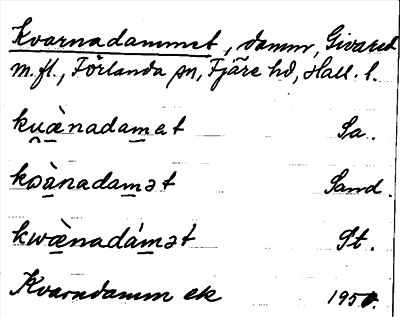 Kvarnadammet, damm, Givared
m.fl., Förlanda sn, Fjäre hd, Hall. l.
ku̯ànadamet Sa.
kɷànadamət Sand.
kwànadámət St.
Kvarndamm ek 1950.